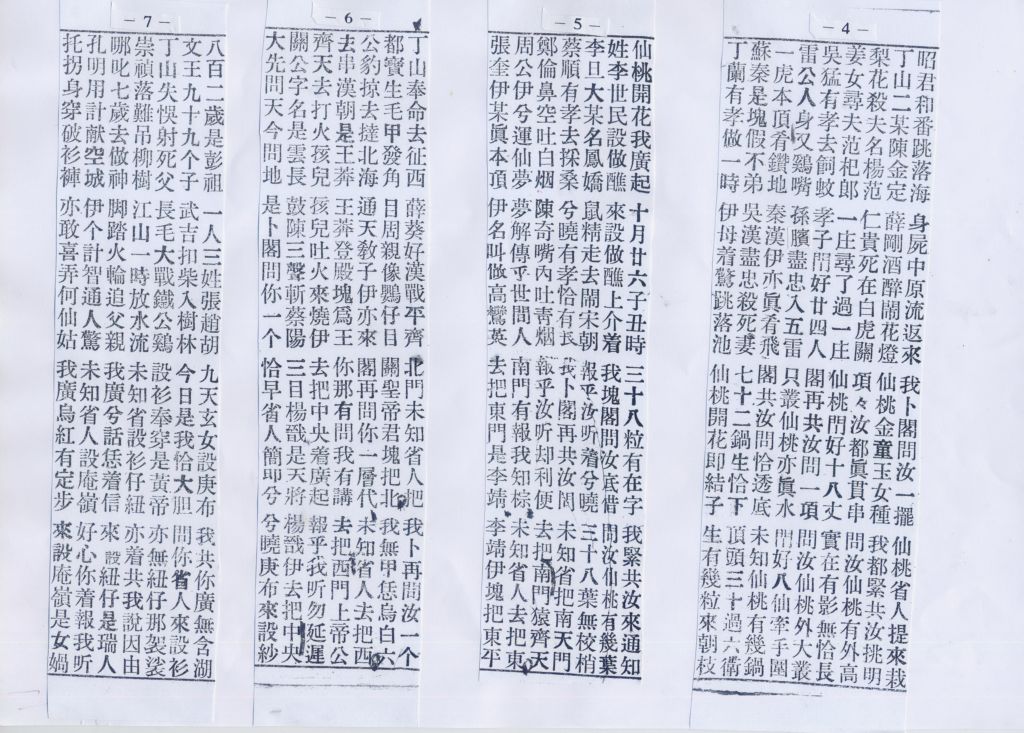 －4－
昭君和番跳落海 身屍中原流返來 我卜閣問汝一擺 仙桃省人提來栽
丁山二某陳金定 薛剛酒醉鬧花燈 仙桃金童玉女種 我都緊共汝挑明
梨花殺夫名楊范 仁貴死在白虎關 項々汝都眞貫串 問汝仙桃有外高
姜女尋夫范杞郎 一庄尋了過一庄 仙桃閂好十八丈 實在有影無恰長
吳猛有孝去飼蚊 孝子閂好廿四人 閣再共汝問一項 問汝仙桃外大叢
雷公人身又鷄嘴 孫臏盡忠入五雷 只叢仙桃亦眞水 閂好八仙牽手圍
一虎本頂看鑽地 秦漢伊亦眞看飛 閣共汝問恰透底 未知仙桃有幾鍋
蘇秦是塊假不弟 吳漢盡忠殺死妻 七十二鍋生恰下 頂頭三十過六衢
丁蘭有孝做一時 伊母着驚跳落池 仙桃開花即結子 生有幾粒來朝枝
－5－
仙桃開花我廣起 十月廿六子丑時 三十八粒有在字 我緊共汝來通知
姓李世民設做醮 來設做醮上介着 我塊閣問汝底惜 問汝仙桃有幾葉
李旦大某名鳳嬌 鼠精走去鬧宋朝 報乎汝听着兮曉 三十八葉無校梢
蔡順有孝去採桑 兮曉有孝恰有長 我卜閣再共汝問 未知省把南天門
鄭倫鼻空吐白烟 陳奇嘴內吐靑烟 報乎汝听却利便 去把南門猿齊天
周公伊兮運仙夢 夢解傳乎世間人 南門有報我知棕 未知省人去把東
張奎伊某眞本頂 伊名叫做高鸞英 去把東門是李靖 李靖伊塊把東平
－6－
丁山奉命去征西 薛葵好漢戰平齊 北門未知省人把 我卜再問汝一个
都寶生毛甲發角 目周親像鸚仔目 關聖帝君塊把北 我無甲恁烏白六
公豹掠去撻北海 通天敎子伊亦來 閣再問你一層代 未知省人去把西
去串漢朝是王莽 王莽登殿塊爲王 你那有問我有講 去把西門上帝公
齊天去打火孩兒 孩兒吐火來燒伊 去把中央着廣起 報乎我听勿延遲
關公字名是雲長 鼓陳三聲斬蔡陽 三目楊戩是天將 楊戩伊去把中央
大先問天今問地 是卜閣問你一个 恰早省人簡即兮 兮曉庚布來設紗
－7－
八百二歲是彭祖 一人三姓張趙胡 九天玄女設庚布 我共你廣無含湖
文王九十九个子 武吉扣柴入樹林 今日是我恰大胆 問你省人來設衫
丁山失悞射死父 長毛大戰鐵公鷄 設衫奉穿是黃帝 亦無紐仔那袈裟
崇禎落難吊柳樹 江山一時放水流 未知省設衫仔紐 亦着共我說因由
哪叱七歲去做神 脚踏火輪追父親 我廣兮話恁着信 來設紐仔是瑞人
孔明用計献空城 伊个計智通人驚 未知省人設庵嶺 好心你着報我听
托拐身穿破衫褲 亦敢喜弄何仙姑 我廣烏紅有定步 來設庵嶺是女媧